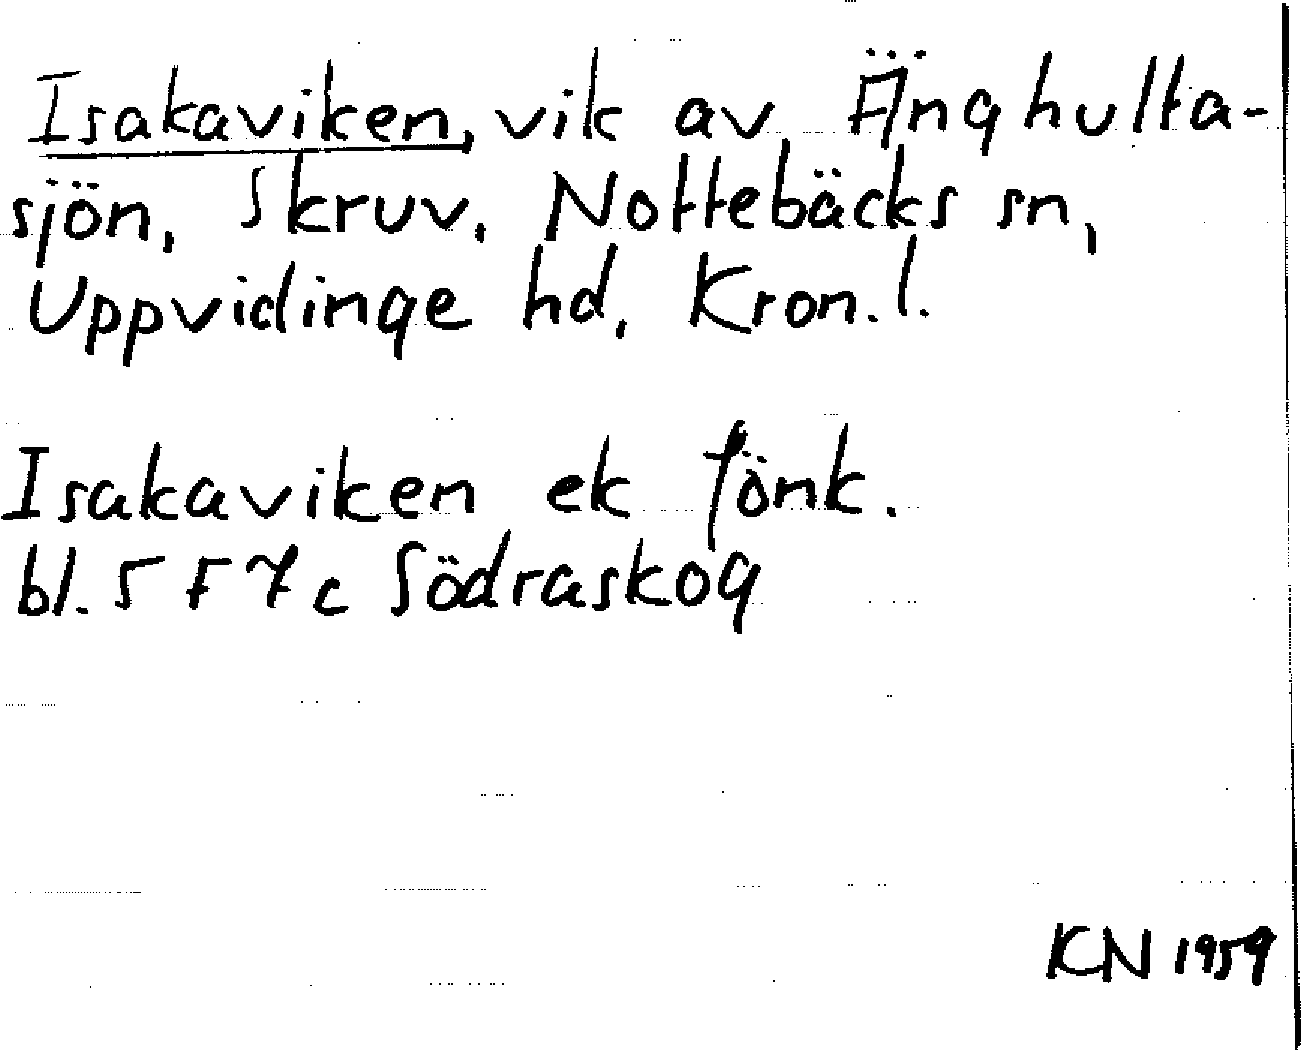 Isakaviken, vik av Änghulta-
sjön, Skruv, Nottebäcks sn,
Uppvidinge hd, Kron.l.
Isakaviken ek fönk.
bl. 5 F 7 c Södraskog
KN 1959